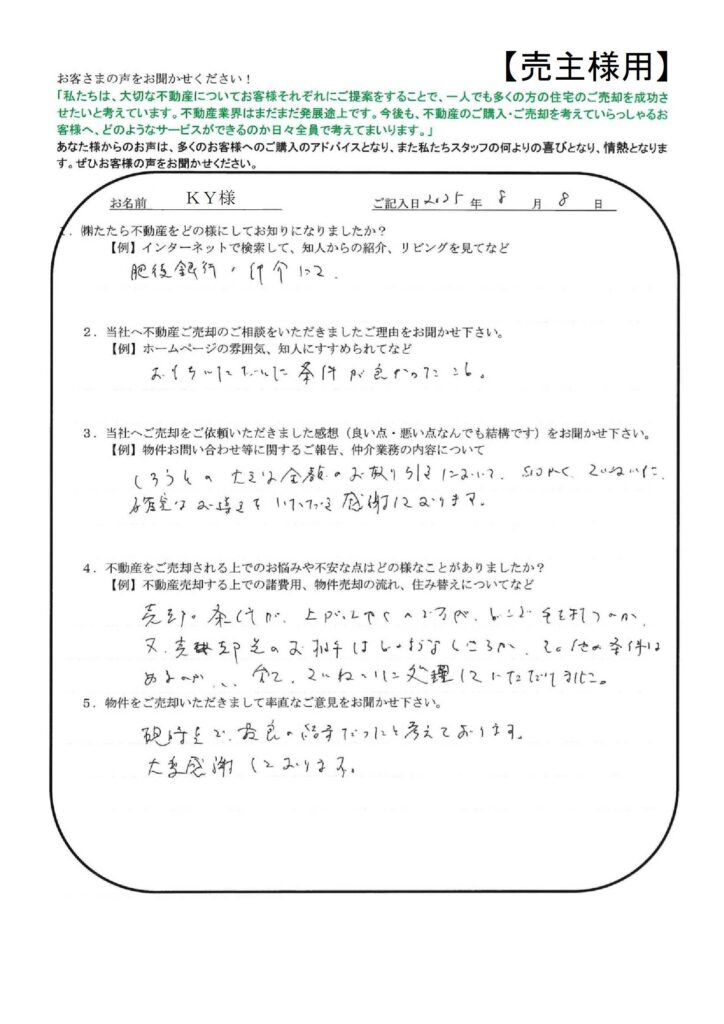 【売主様用】
お客さまの声をお聞かせください！
「私たちは、大切な不動産についてお客様それぞれにご提案をすることで、一人でも多くの方の住宅のご売却を成功さ
せたいと考えています。不動産業界はまだまだ発展途上です。今後も、不動産のご購入・ご売却を考えていらっしゃるお
客様へ、どのようなサービスができるのか日々全員で考えてまいります。」
あなた様からのお声は、多くのお客様へのご購入のアドバイスとなり、また私たちスタッフの何よりの喜びとなり、情熱となりま
す。ぜひお客様の声をお聞かせください。
お名前 KY様 ご記入日 2025 年 8 月 8 日
1．㈱たたら不動産をどの様にしてお知りになりましたか？
【例】インターネットで検索して、知人からの紹介、リビングを見てなど
肥後銀行 仲介にて．
2．当社へ不動産ご売却のご相談をいただきましたご理由をお聞かせ下さい。
【例】ホームページの雰囲気、知人にすすめられてなど
条件が良かった
3．当社へご売却をご依頼いただきました感想（良い点・悪い点なんでも結構です）をお聞かせ下さい。
【例】物件お問い合わせ等に関するご報告、仲介業務の内容について
しろうとの大きな金額のお取り引きにおいて、 ていねいに、
確実な いただき感謝しております。
4．不動産をご売却される上でのお悩みや不安な点はどの様なことがありましたか？
【例】不動産売却する上での諸費用、物件売却の流れ、住み替えについてなど
売却の条件が、上がってゆく 、どこで手を打つのか、
又、売却先のお相手はどのようなところか、その他の条件は
あるのか、、全て、ていねいに処理していただけました。
5．物件をご売却いただきまして率直なご意見をお聞かせ下さい。
現時点で、最良の結果だったと考えております。
大変感謝しております。